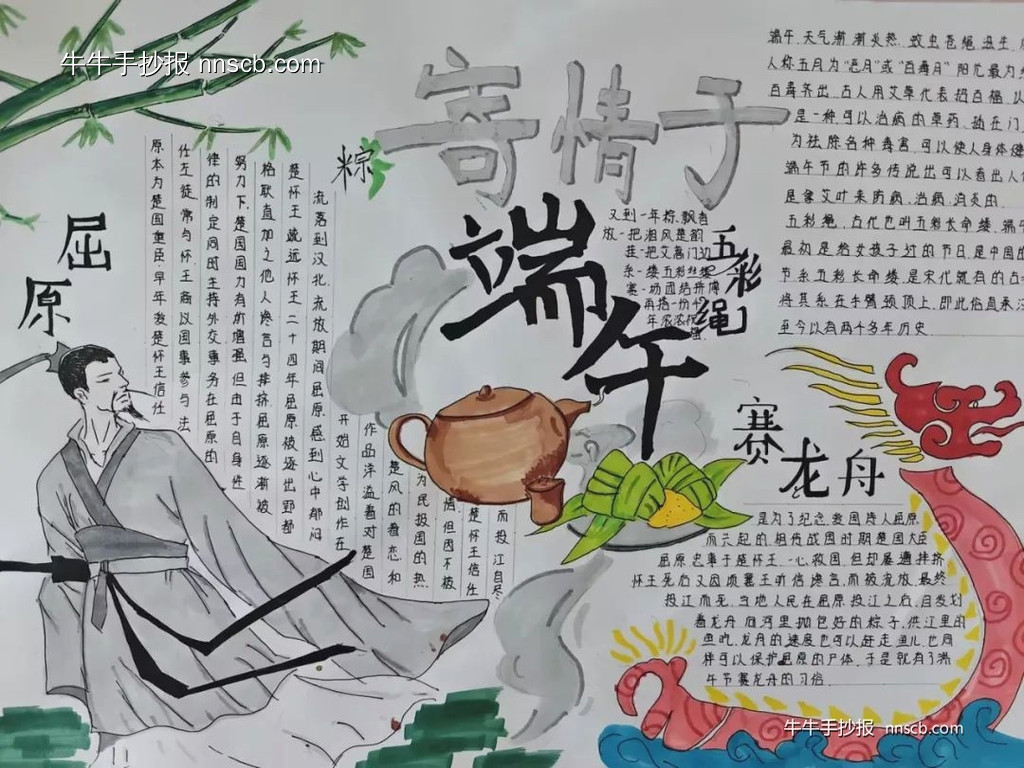 牛牛手抄报 nnscb.com
寄情于
端午
屈原
原本为楚国重臣.早年受楚怀王信任
任左徒.常与怀王商议国事.参与法
律的制定同时主持外交事务在屈原的
努力下.楚国国力有所增强.但由于自身性
格耿直加之他人谗言与排挤.屈原逐渐被
楚怀王疏远.怀王二十四年屈原被逐出郢都
流落到汉北.流放期间屈原感到心中郁闷
开始文学创作在
作品洋溢着对楚国
楚风的眷恋和
为民报国的热
情但因不被
楚怀王信任
而投江自尽
粽
又到一年粽飘香
放一把湘风楚韵
挂一把艾蒿门边
系一缕五彩丝线
赛一场团结拼搏
再搭一份
年浓浓
五彩绳
端午.天气渐渐炎热.蚊虫苍蝇滋生.
人称五月为"恶月"或"百毒月"阳忙最为
百毒齐出.古人用艾草代表招百福.
是一种可以治病的草药.插在门
为祛除各种毒害.可以使人身体健
端午节的许多传说出可以看出人
是拿艾叶来防病.治病.消炎的.
五彩绳.古代也叫五彩长命缕.端午
最初是给女孩子过的节日.是中国的
节系五彩长命缕是宋代就有的古
将其系在手臂颈项上.即此俗自承
至今以有两千多年历史.
赛龙舟
是为了纪念爱国诗人屈原.
而兴起的.相传战国时期楚国大臣
屈原忠事于楚怀王.一心救国.但却屡遭排挤.
怀王死后又因顷襄王听信谗言.而被流放.最终
投江而死.当地人民在屈原投江之后.自发划
着龙舟.向河里抛包好的粽子.供江里的
鱼吃.龙舟的速度也可以赶走鱼儿.也同
样可以保护屈原的尸体.于是就有了端
午节赛龙舟的习俗.
牛牛手抄报 nnscb.com